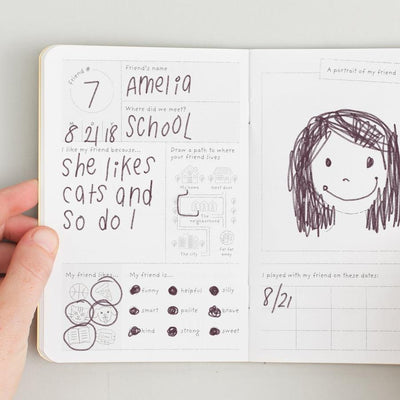 Friend #
7
Friend's name
Amelia
Where did we meet?
8/21/18 SCHOOL
I like my friend because...
she likes
cats and
so do I
Draw a path to where
your friend lives
My home
Next door
The
neighborhood
The city
Far far
away
My friend likes...
My friend is...
funny helpful silly
smart polite brave
kind strong sweet
A portrait of my friend
I played with my friend on these dates:
8/21